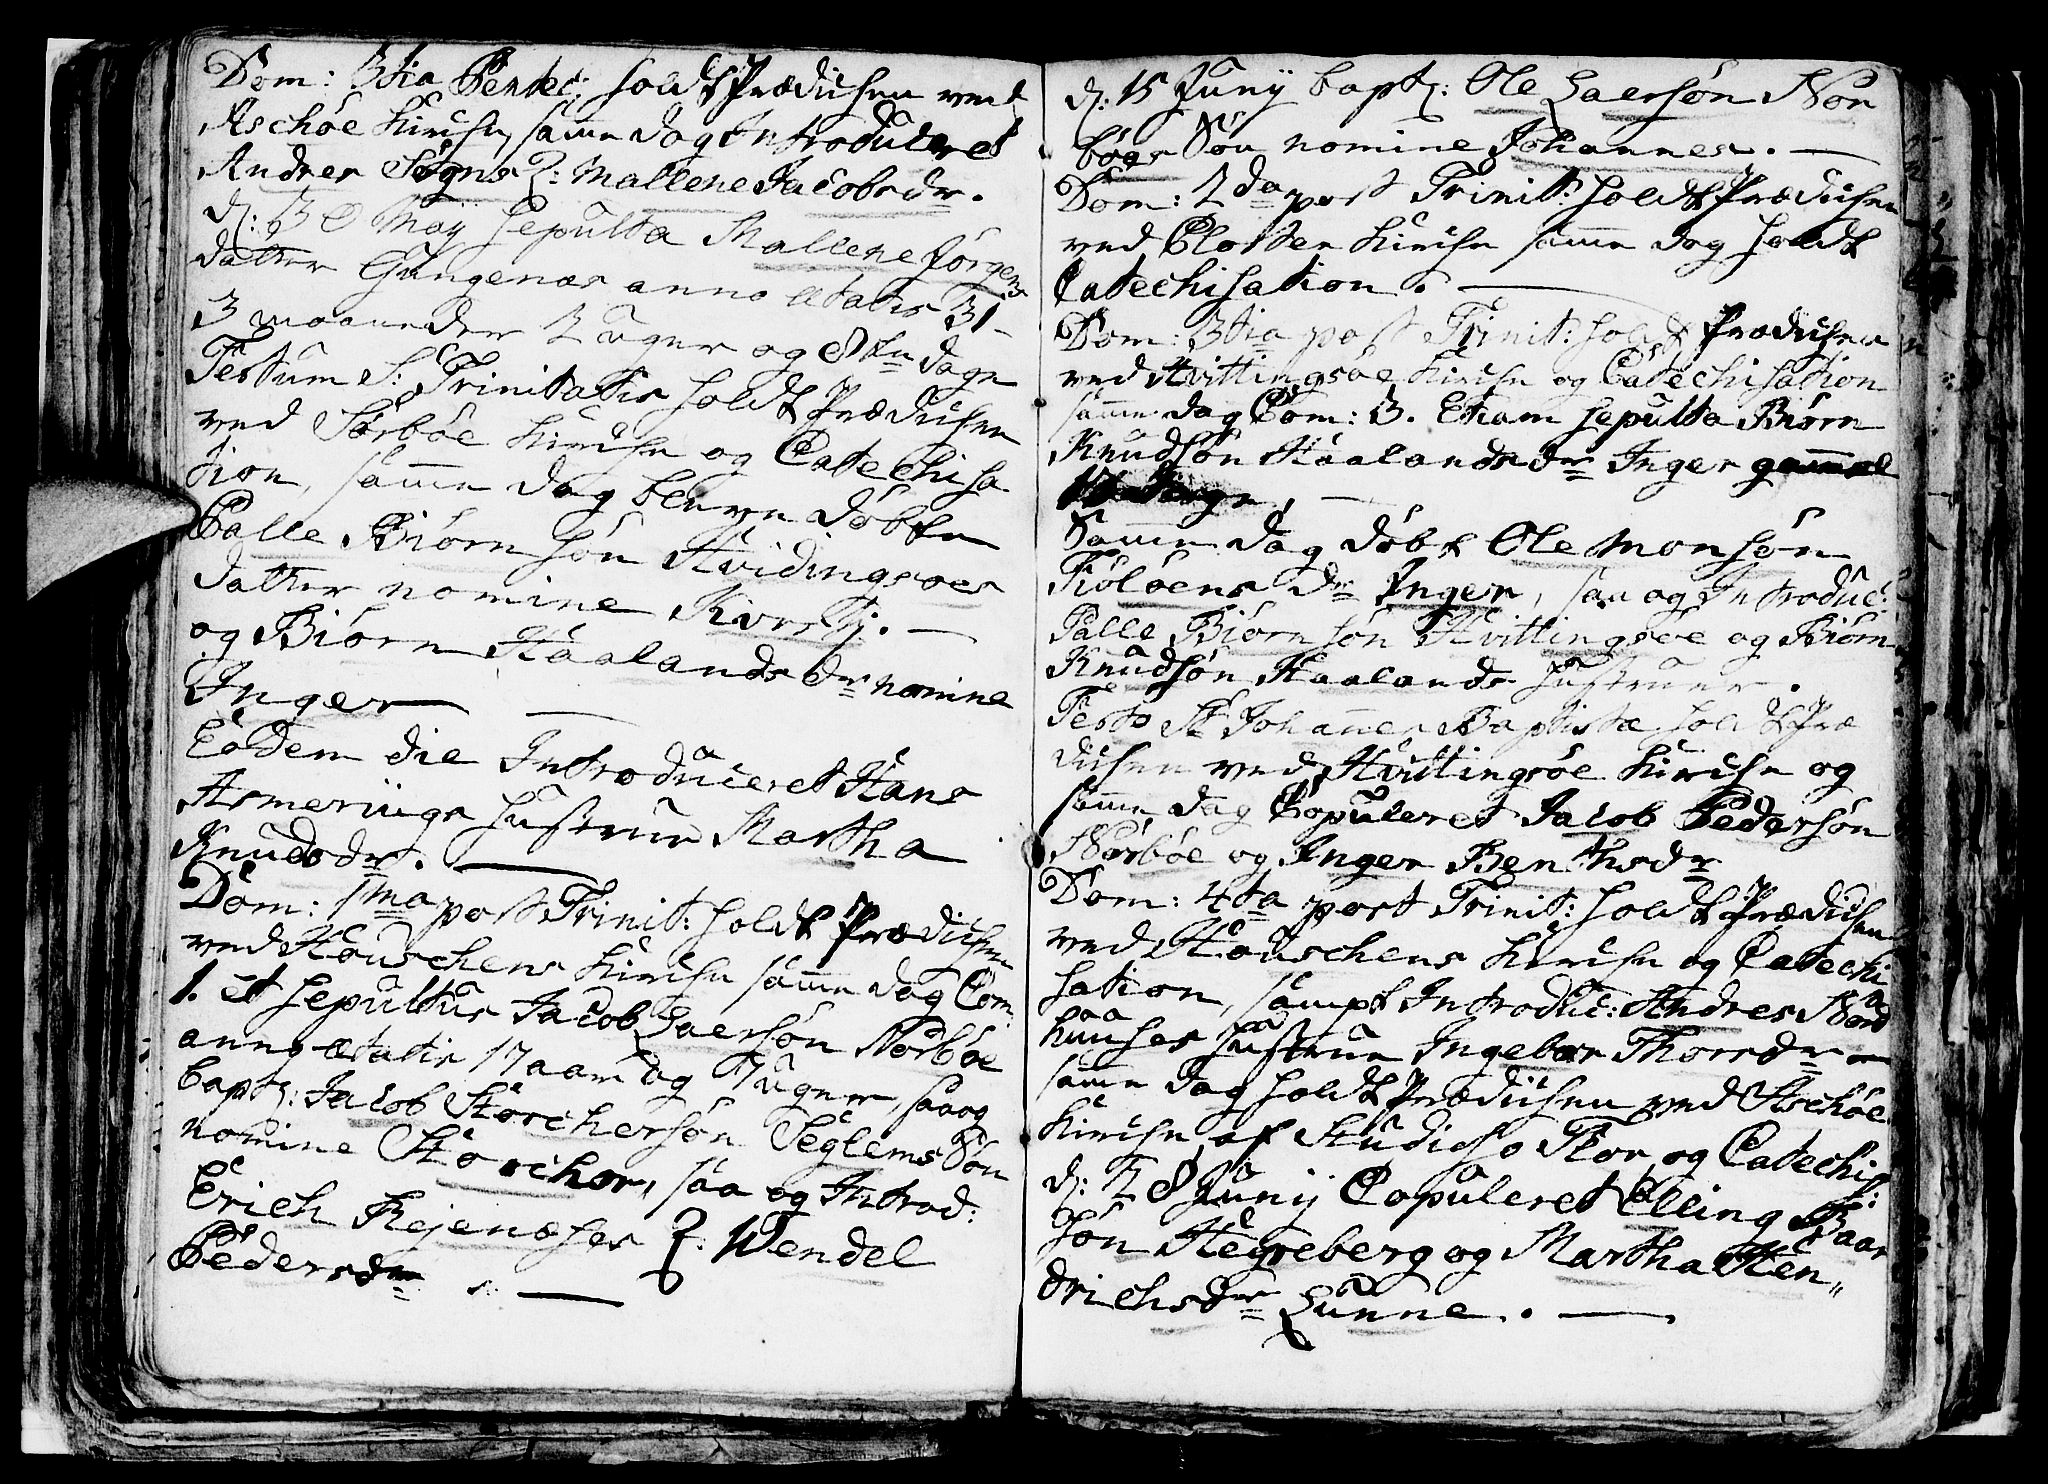 Dom: 3tia Pentec: holdt Prædichen ved
Aschöe Kirche, samme dag Introduceret
Andres Sögns Q: Mallene Jacobsdr.
d: 30 Maij sepulta Mallene Jörgens
datter Gungenæs anno ætatis 31
3 maaneder 2 uger og 8te dage
Festum S: Trinitatis holdt Prædichen
ved Sörböe Kirche og Catechisa
tion, samme dag bleven döbten
Palle Biörnsön Hvidingsöes
datter nomine Kirstj. —
og Biörn Haalands dr nomine
Inger — —
Eodem die Introduceret Hans
Asmeriigs hustrue Martha
Knudsdr. —
Dom: 1ma post Trinit: holdt Prædichen
ved Houschens Kirche samme dag Com:
1. et sepultus Jacob Laersön Norböe
anno ætatis 17 aar og 7 uger, saa og
bapt: Jacob Storchersön Seglems Sön
nomine Storchor, saa og Introd:
Erich Rejenæses Q: Wendel
Pedersdr. —
d: 15 Junij bapt: Ole Laersön Nor
böes Sön nomine Johannes. —
Dom: 2da post Trinit: holdt Prædichen
ved Closter Kirche samme dag holdt
Catechisation. —
Dom: 3tia post Trinit: holdt Prædichen
ved Hvittingsöe Kirche og Catechisation
samme dag Com: 3. Etiam sepulta Biörn
Knudsön Haalands dr Inger gammel
Samme dag döbt Ole Monsön
Fiölöens dr Inger, saa og Introduc:
Palle Biörnsön Hvittingsöe og Biörn
Knudsön Haalands hustruer.
Festo St Johannes Baptistæ holdt Præ
dichen ved Hvittingsöe Kirche og
samme dag Copuleret Jacob Pedersön
Norböe og Inger Benthsdr
Dom: 4ta post Trinit: holdt Prædichen
ved Houschens Kirche og Catechi
sation, sampt Introduc: Andres Nord
huuses hustrue Ingebor Thorsdr —
samme dag holdt Prædichen ved Aschöe
Kirche af Studioso Flor og Catechis:
d: 28 Junij Copuleret Elling Baar
sön Hegreberg og Martha Hen„
drichsdr Lunne. —